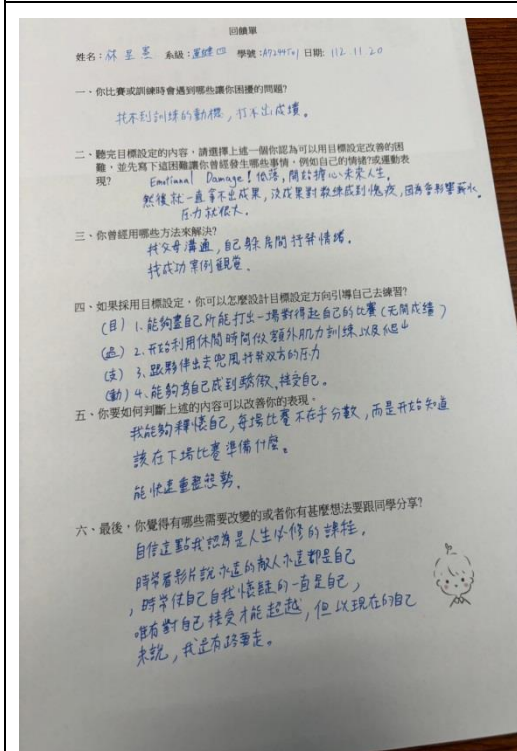 回饋單
姓名：林 呈 系級：運健四 學號：A7244501 日期：112.11.20
一、你比賽或訓練時會遇到哪些讓你困擾的問題?
找不到訓練的動機，打不出成績。
二、聽完目標設定的內容，請選擇上述一個你認為可以用目標設定改善的困
難，並先寫下這困難讓你曾經發生哪些事情，例如自己的情緒?或運動表
現?
Emotional Damage！低落，開始擔心未來人生。
然後就一直拿不出成果，沒成果對教練感到愧疚，因為會影響薪水。
压力就很大。
三、你曾經用哪些方法來解決?
找父母溝通，自己躲房間抒發情緒。
找成功案例觀覺。
四、如果採用目標設定，你可以怎麼設計目標設定方向引導自己去練習?
(目) 1、能夠盡自己所能打出一場對得起自己的比賽（无関成績）
2、开始利用休閒時間做額外肌力訓練以及
(支) 3、跟夥伴出去 抒發双方的压力
(動) 4、能夠為自己感到驕傲，接受自己。
五、你要如何判斷上述的內容可以改善你的表現。
我能夠釋懷自己，每場比賽不在乎分數，而是开始知道
該在下場比賽準備什麼。
能快速重整態勢。
六、最後，你覺得有哪些需要改變的或者你有甚麼想法要跟同學分享?
自信這點我認為是人生必修的課程，
時常看影片說永遠的敵人永遠都是自己
，時常使自己自我懷疑的一直是自己，
唯有對自己接受才能超越，但以現在的自己
來說，我还有路要走。